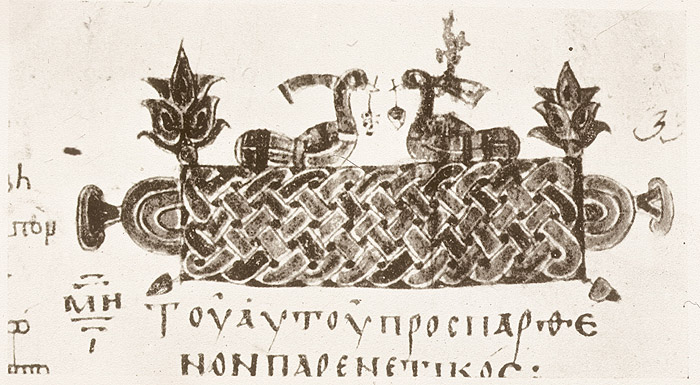 ΜΗ
ΤΟΥ ΑΥΤΟΥ ΠΡΟϹ ΠΑΡΘΕ
ΝΟΝ ΠΑΡΕΝΕΤΙΚΟϹ: